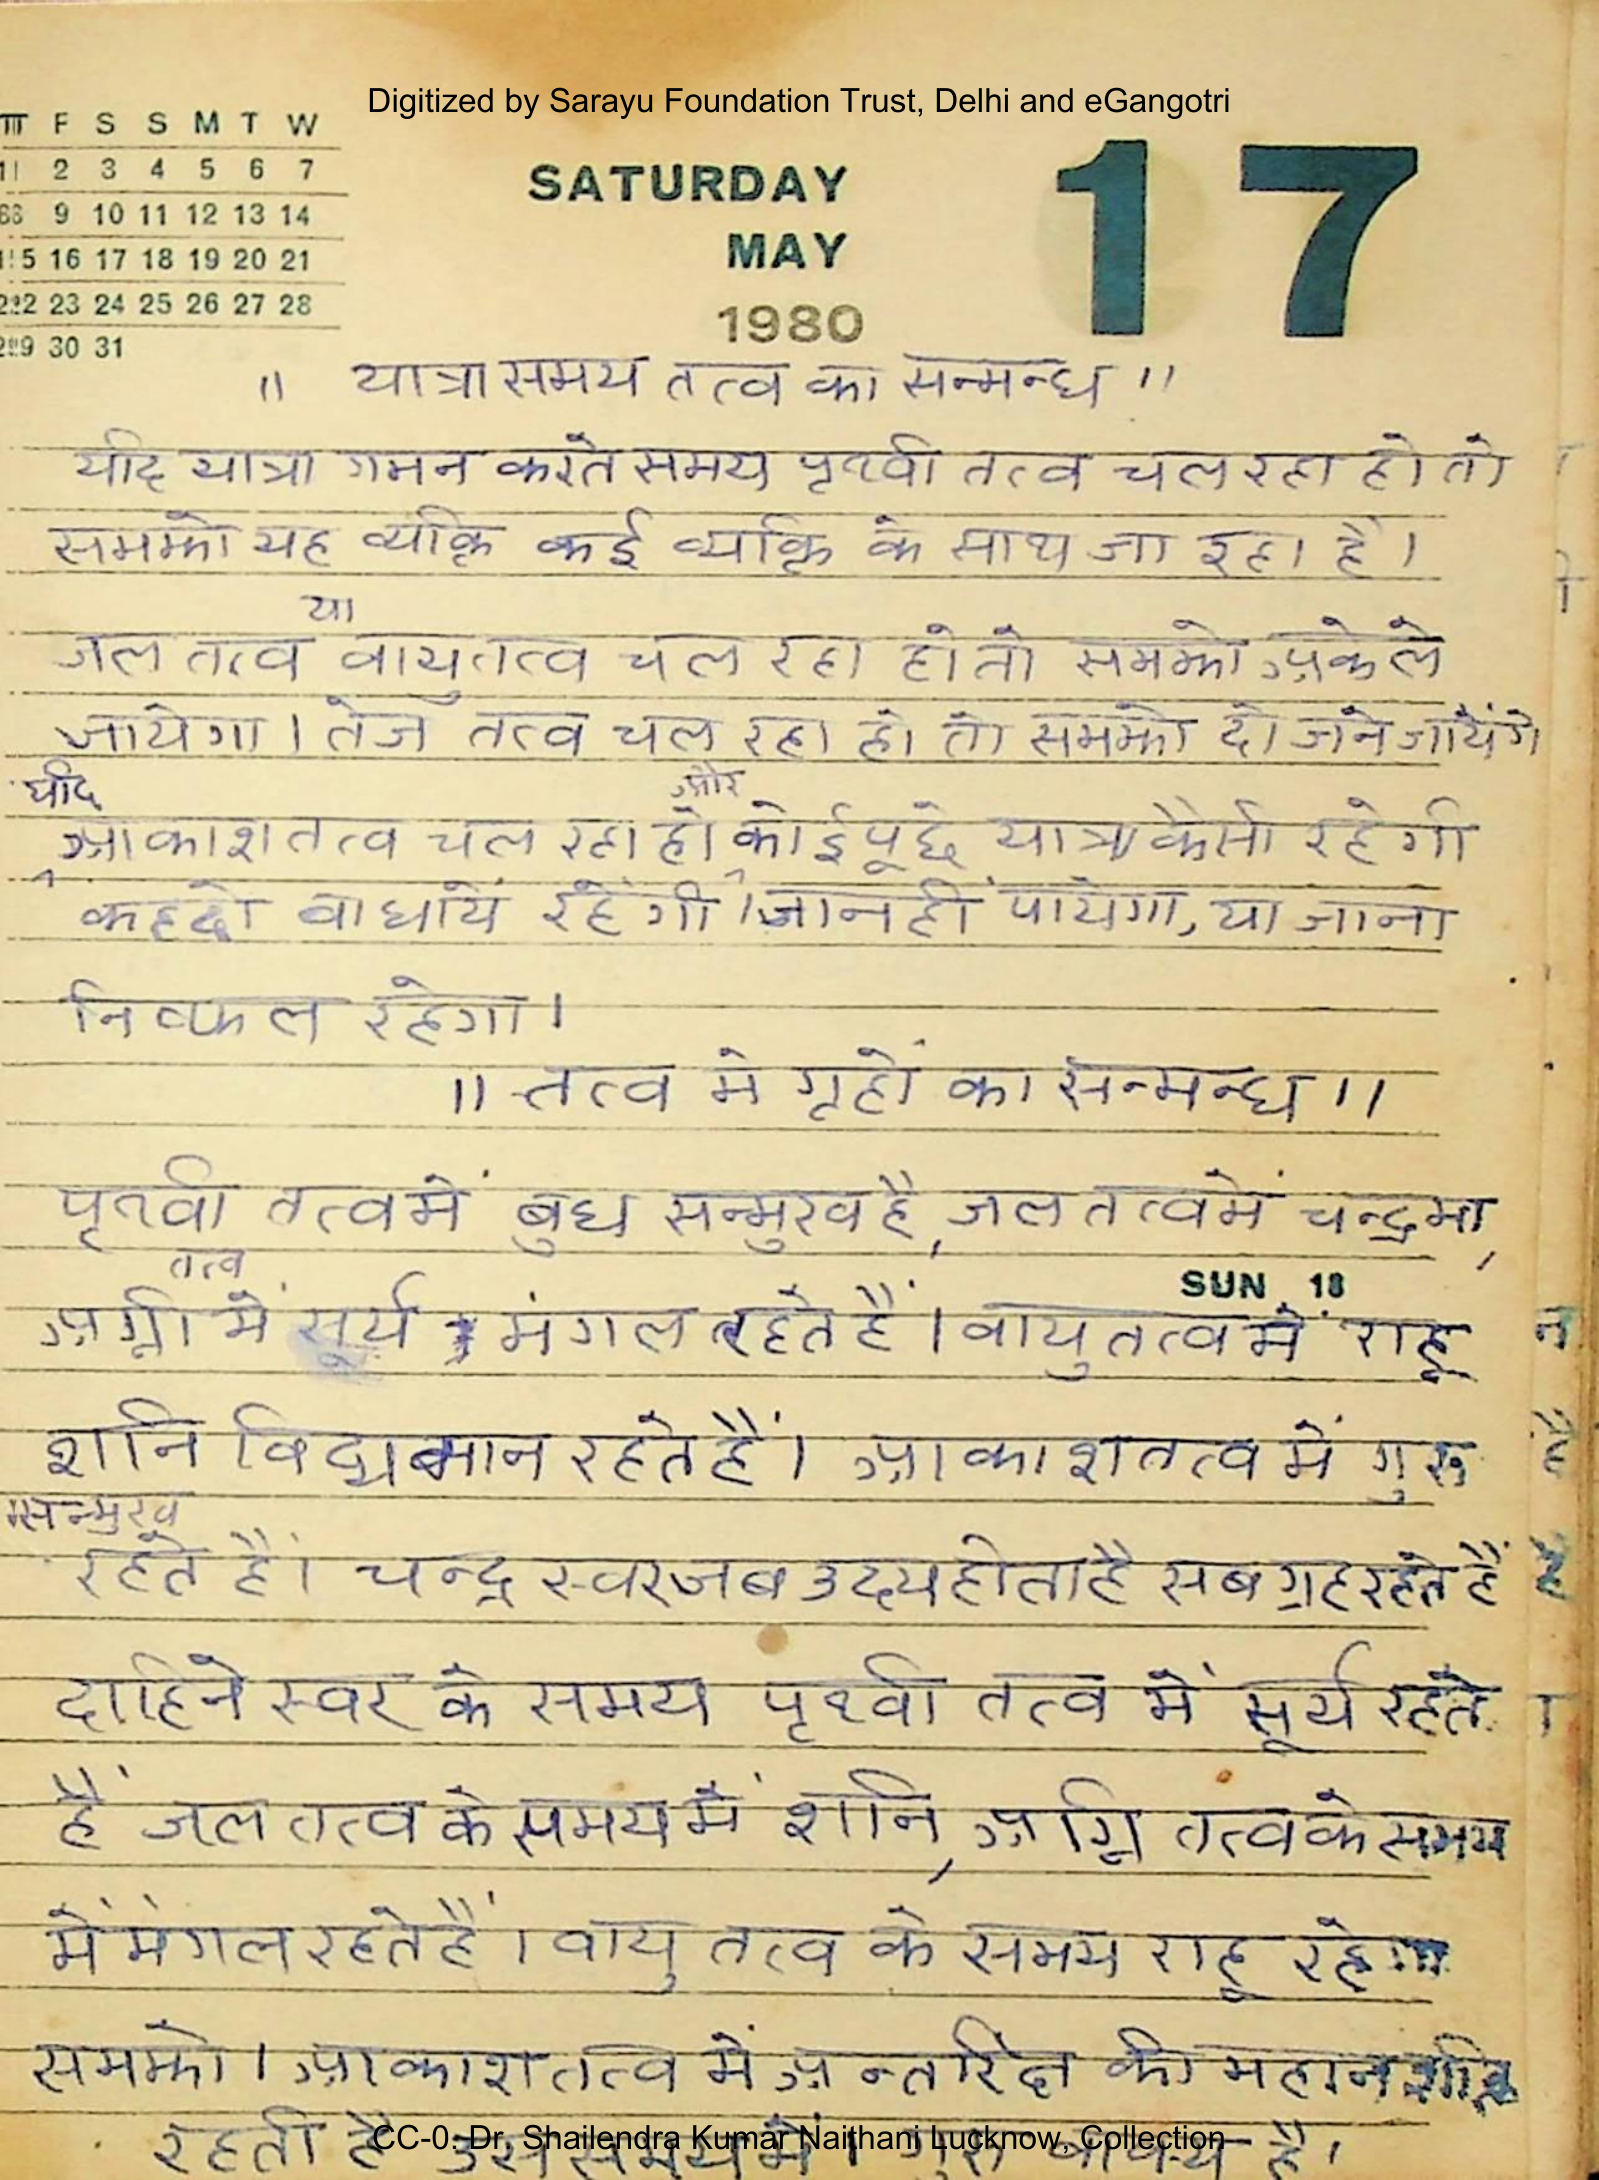 Digitized by Sarayu Foundation Trust, Delhi and eGangotri
F S S M T W
2 3 4 5 6 7
9 10 11 12 13 14
15 16 17 18 19 20 21
22 23 24 25 26 27 28
29 30 31
SATURDAY
MAY
1980
17
॥ यात्रा समय तत्व का सन्मन्ध ॥
यदि यात्रा गमन करते समय पृथ्वी तत्व चल रहा हो तो
समझो यह व्यक्ति कई व्यक्ति के साथ जा रहा है।
या
जल तत्व वायु तत्व चल रहा हो तो समझो अकेले
जायेगा। तेज तत्व चल रहा हो तो समझो दो जने जायेंगे
यदि और
आकाश तत्व चल रहा हो, कोई पूछे यात्रा कैसी रहेगी
कहदो बाधायें रहेंगी। जा नही पायेगा, या जाना
निष्फल रहेगा।
॥ तत्व मे गृहों का सन्मन्ध ॥
पृथ्वी तत्व में बुध सन्मुख है, जल तत्व में चन्द्रमा,
तत्व
SUN 18
अग्नी में सूर्य मंगल रहते हैं। वायु तत्व में राहू
शनि विद्यमान रहते हैं। आकाश तत्व में गुरू
सन्मुख
रहते हैं। चन्द्र स्वर जब उदय होता है सब ग्रह रहते हैं
दाहिने स्वर के समय पृथ्वी तत्व में सूर्य रहते
हैं जल तत्व के समय में शनि, अग्नि तत्व के समय
में मंगल रहते हैं। वायु तत्व के समय राहू रहेगा
समझो। आकाश तत्व में अन्तरिक्ष की महान शक्ति
रहती है उस समय में। गुरू है।
CC-0. Dr. Shailendra Kumar Naithani Lucknow, Collection